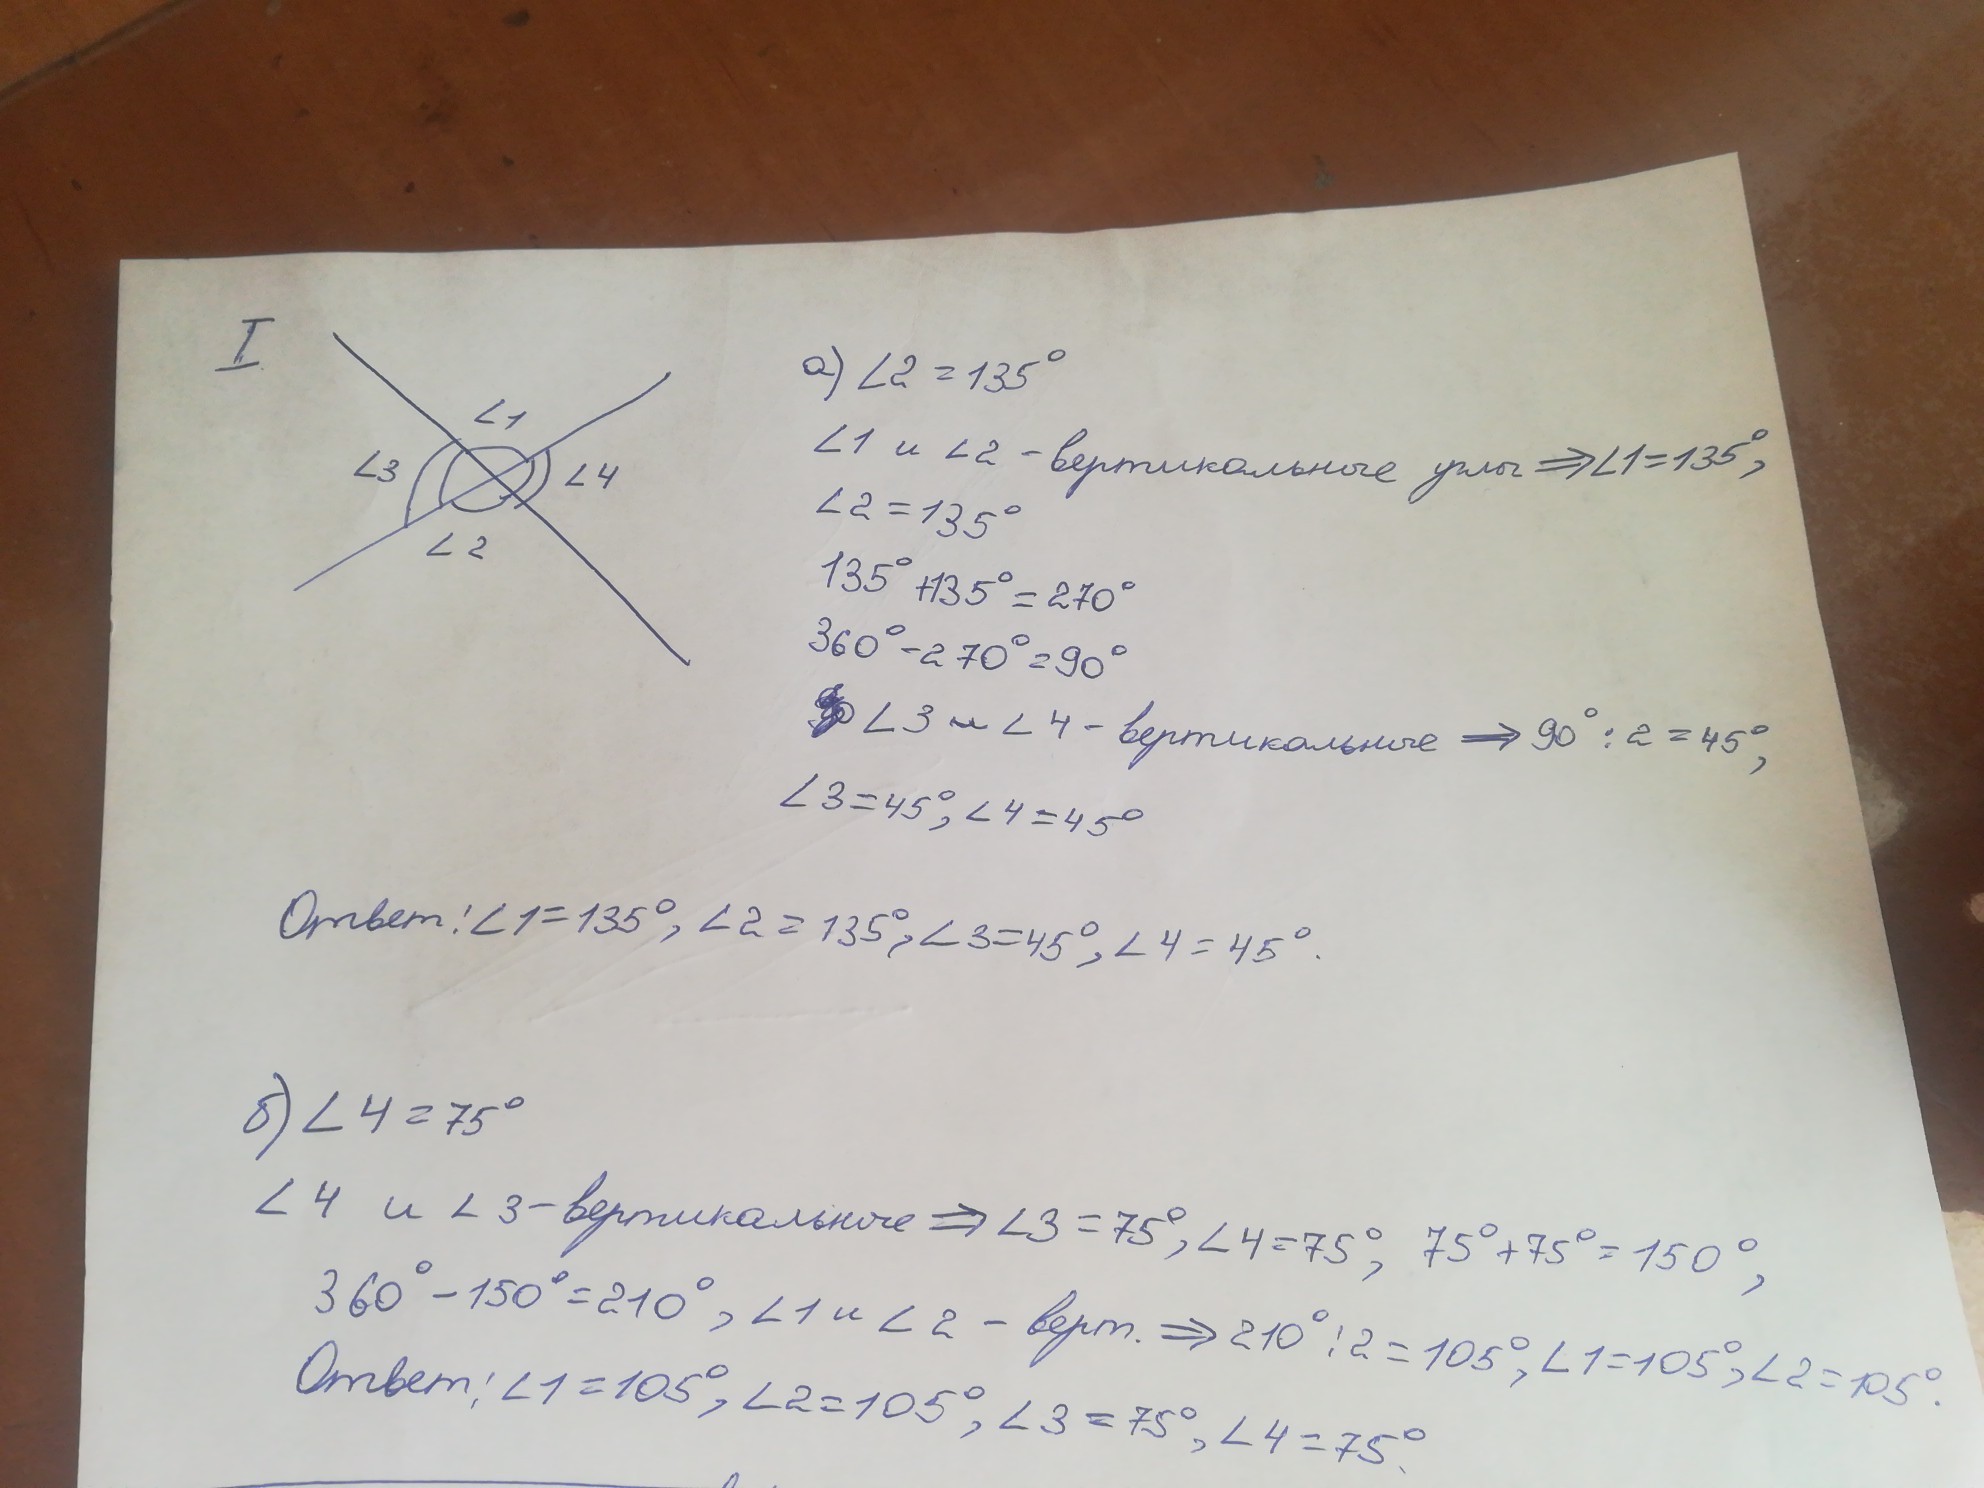 I
∠1
∠3
∠4
∠2
а) ∠2 = 135°
∠1 и ∠2 - вертикальные углы ⇒ ∠1 = 135°,
∠2 = 135°
135° + 135° = 270°
360° - 270° = 90°
∠3 и ∠4 - вертикальные ⇒ 90° : 2 = 45°,
∠3 = 45°, ∠4 = 45°
Ответ: ∠1 = 135°, ∠2 = 135°, ∠3 = 45°, ∠4 = 45°.
б) ∠4 = 75°
∠4 и ∠3 - вертикальные ⇒ ∠3 = 75°, ∠4 = 75°, 75° + 75° = 150°,
360° - 150° = 210°, ∠1 и ∠2 - верт. ⇒ 210° : 2 = 105°, ∠1 = 105°, ∠2 = 105°.
Ответ: ∠1 = 105°, ∠2 = 105°, ∠3 = 75°, ∠4 = 75°.